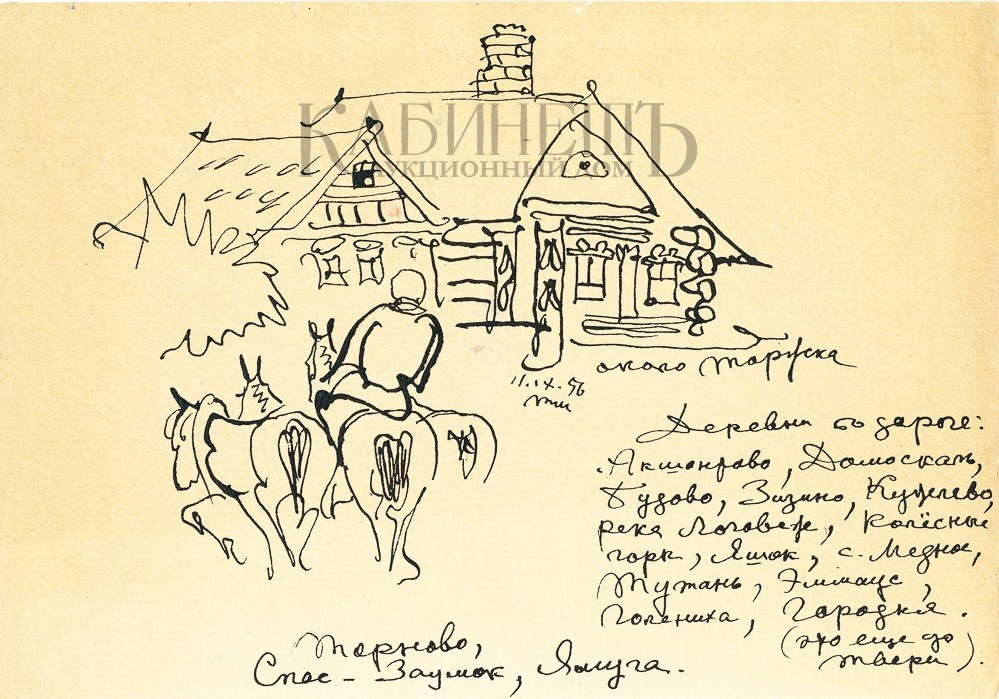 КАБИНЕТЪ
АУКЦИОННЫЙ ДОМ
около Торжка
11.IX.56
Деревни по дороге:
Акшонтово, Домоскань,
Будово, Зизино, Кужлево,
река Логовеж, Колёсные
горк, Яшок, с. Медное,
Тужань, Эммаус,
Голениха, Городня.
(это еще до
Твери).
Торново,
Спас-Заулок, Ямуга.